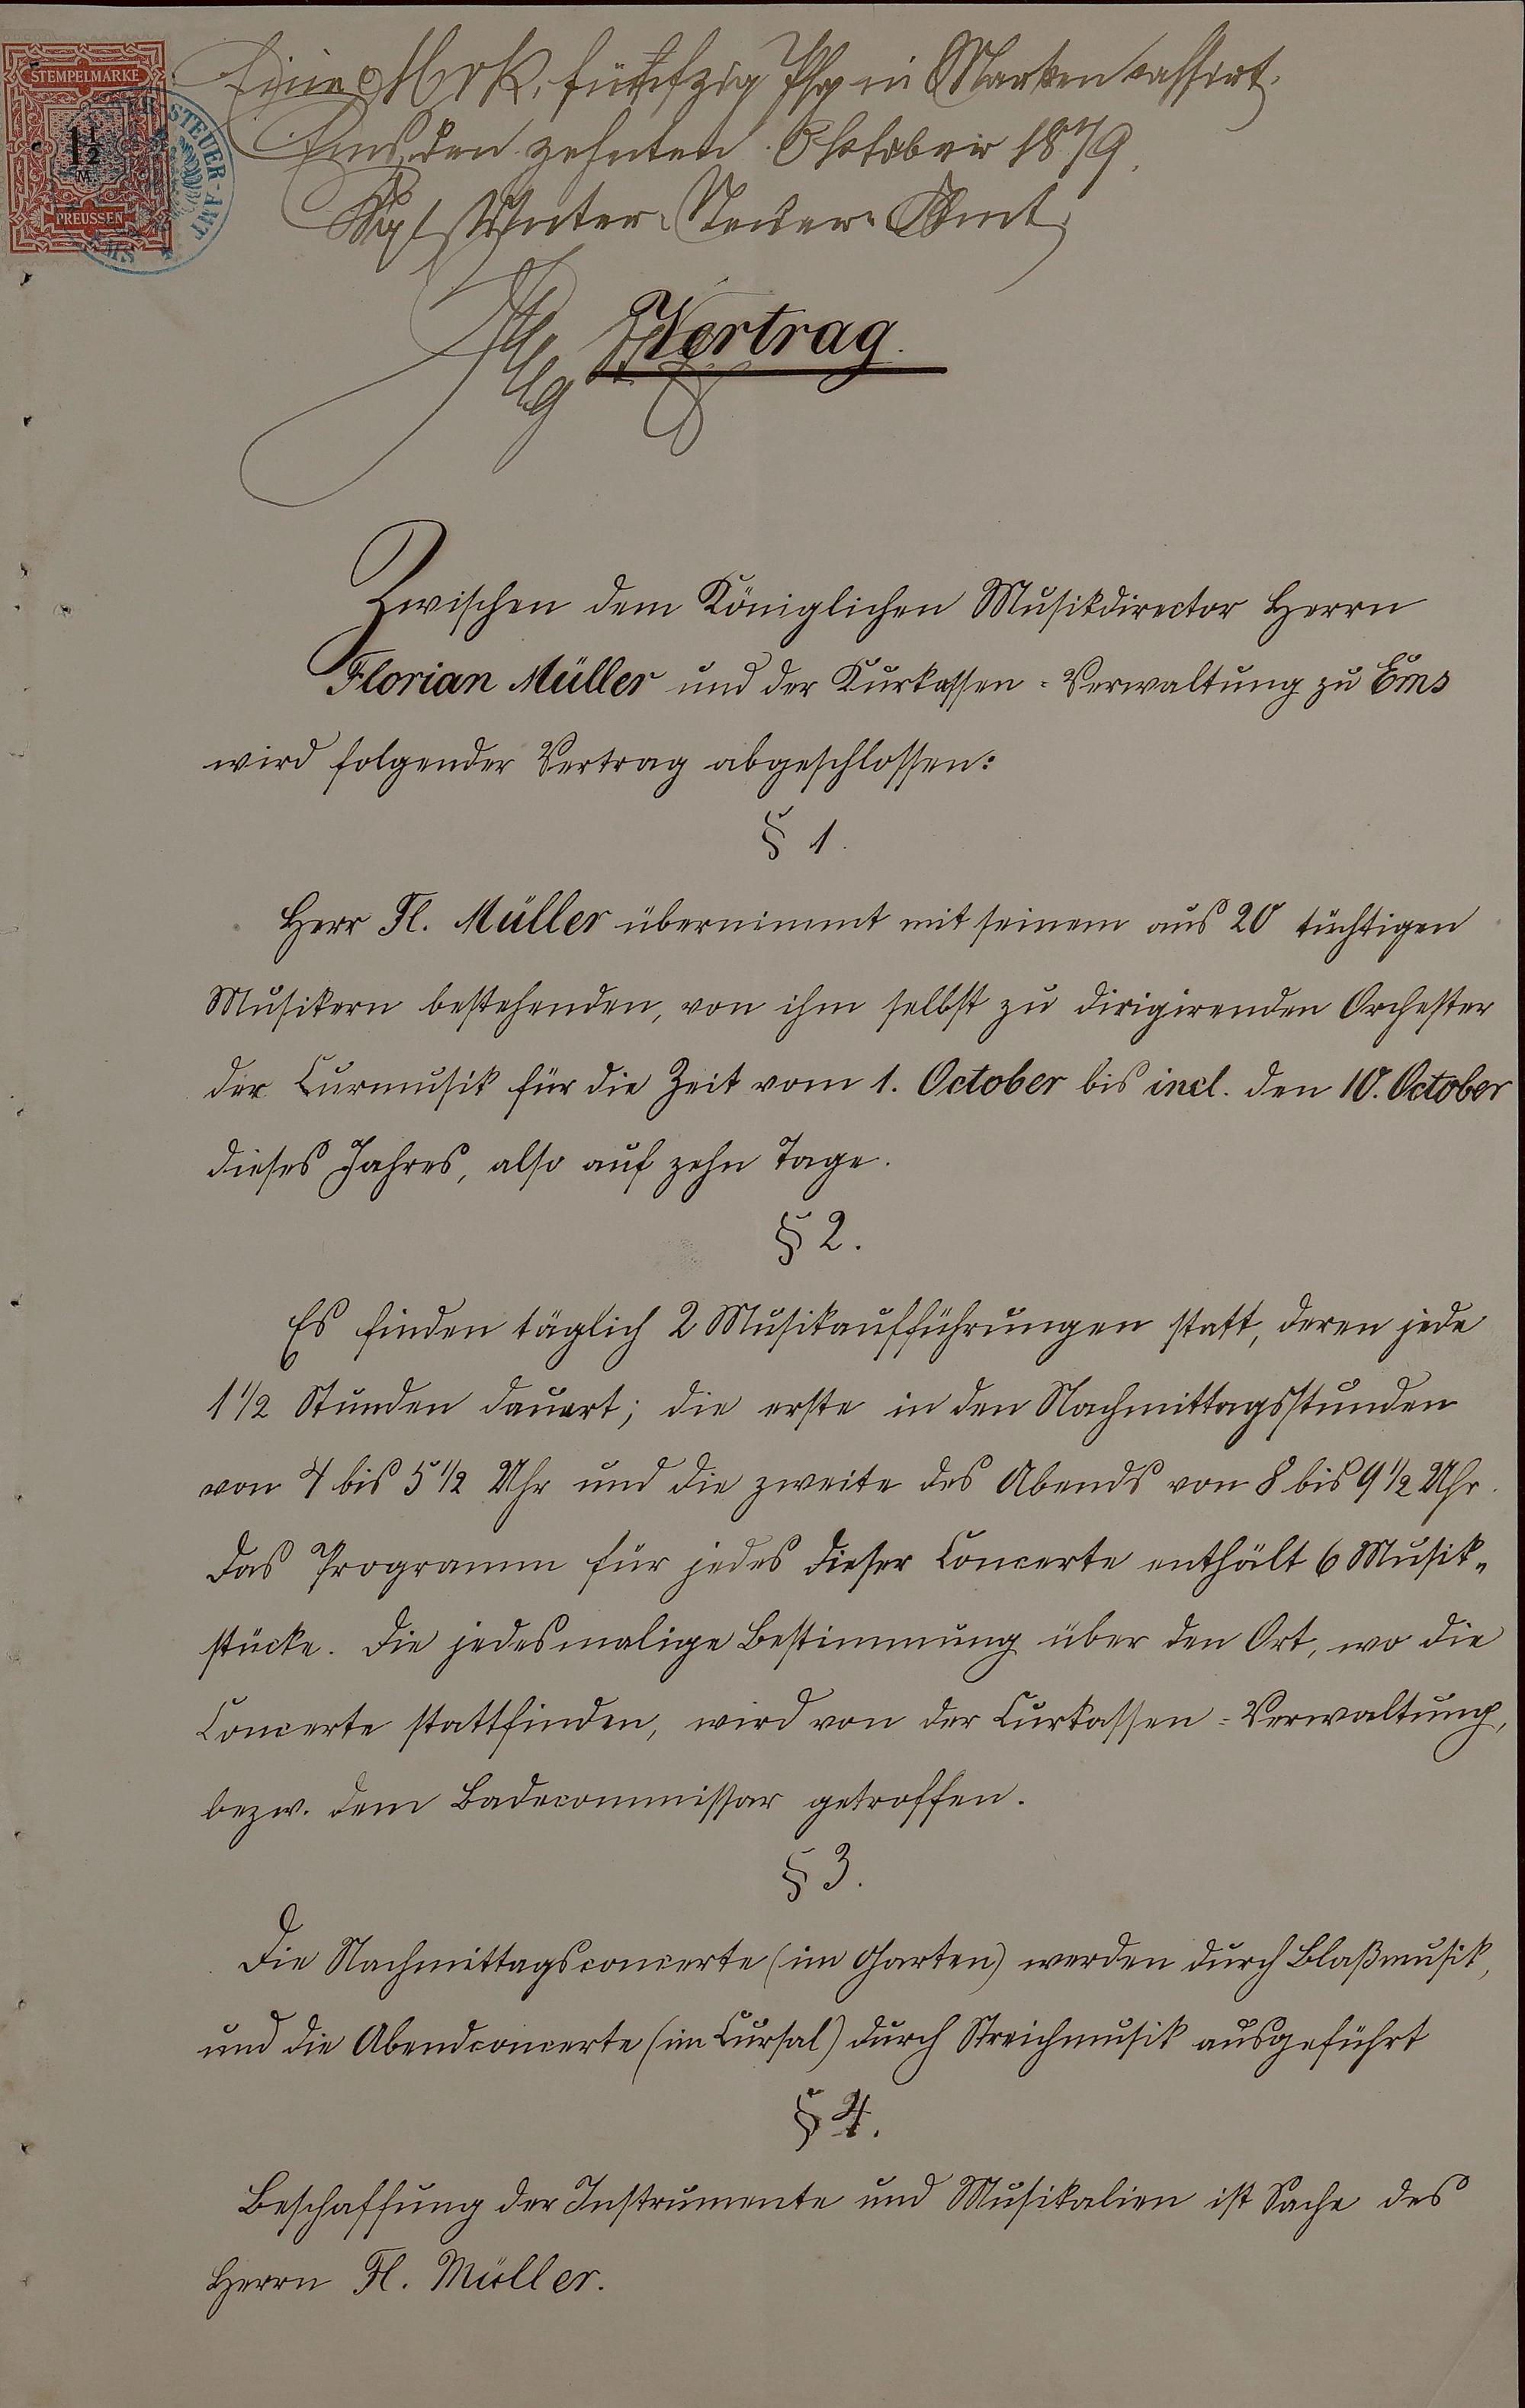 STEMPELMARKE
1½
M.
PREUSSEN
STEUER-AMT
EMS
Eine Mrk, fünfzig Pfg in Marken cassirt.
Ems, den zehnten Oktober 1879.
Kgl. Unter-Steuer-Amt,
Vertrag.
Zwischen dem Königlichen Musikdirector Herrn
Florian Müller und der Kurkassen-Verwaltung zu Ems
wird folgender Vertrag abgeschlossen:
§ 1.
Herr Fl. Müller übernimmt mit seinem aus 20 tüchtigen
Musikern bestehenden, von ihm selbst zu dirigirenden Orchester
der Curmusik für die Zeit vom 1. October bis incl. den 10. October
dieses Jahres, also auf zehn Tage.
§ 2.
Es finden täglich 2 Musikaufführungen statt, deren jede
1 1/2 Stunden dauert; die erste in den Nachmittagsstunden
von 4 bis 5 1/2 Uhr und die zweite des Abends von 8 bis 9 1/2 Uhr.
Das Programm für jedes dieser Concerte enthält 6 Musik-
stücke. Die jedesmalige Bestimmung über den Ort, wo die
Concerte stattfinden, wird von der Curkassen-Verwaltung,
bezw. dem Badecommissar getroffen.
§ 3.
Die Nachmittagsconcerte (im Garten) werden durch Blaßmusik,
und die Abendconcerte (im Cursal) durch Streichmusik ausgeführt
§ 4.
Beschaffung der Instrumente und Musikalien ist Sache des
Herrn Fl. Müller.